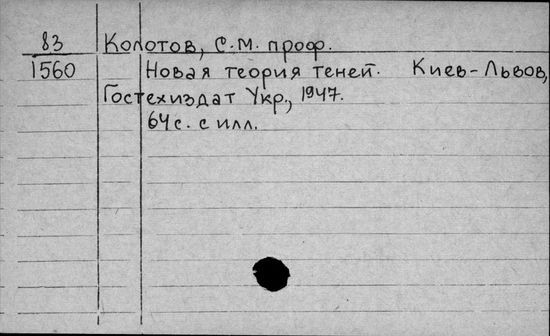 83 Колотов, С.М. проф.
1560 Новая теория теней. Киев-Львов,
Гостехиздат Укр., 1947.
64 с. с илл.